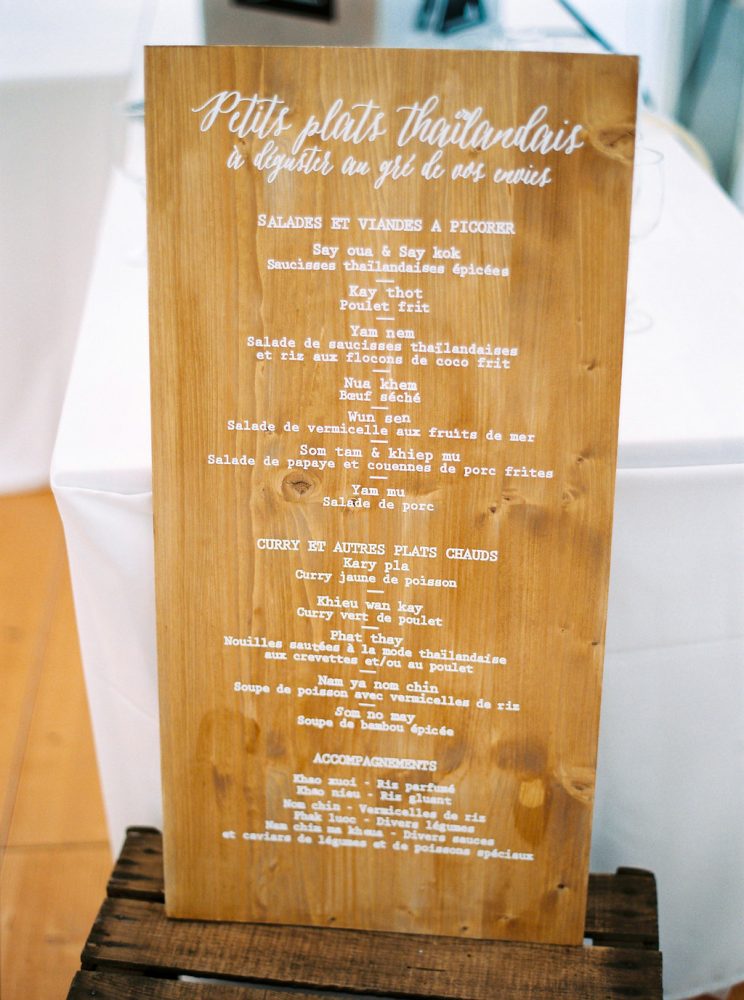 Petits plats thaïlandais
à déguster au gré de vos envies
SALADES ET VIANDES A PICORER
Say oua & Say kok
Saucisses thaïlandaises épicées
Kay thot
Poulet frit
Yam nem
Salade de saucisses thaïlandaises
et riz aux flocons de coco frit
Nua khem
Bœuf séché
Wun sen
Salade de vermicelle aux fruits de mer
Som tam & khiep mu
Salade de papaye et couennes de porc frites
Yam mu
Salade de porc
CURRY ET AUTRES PLATS CHAUDS
Kary pla
Curry jaune de poisson
Khieu wan kay
Curry vert de poulet
Phat thay
Nouilles sautées à la mode thaïlandaise
aux crevettes et/ou au poulet
Nam ya nom chin
Soupe de poisson avec vermicelles de riz
Som no may
Soupe de bambou épicée
ACCOMPAGNEMENTS
Khao xuoi - Riz parfumé
Khao nieu - Riz gluant
Nom chin - Vermicelles de riz
Phak luoc - Divers légumes
Nam chim ma kheua - Divers sauces
et caviars de légumes et de poissons spéciaux